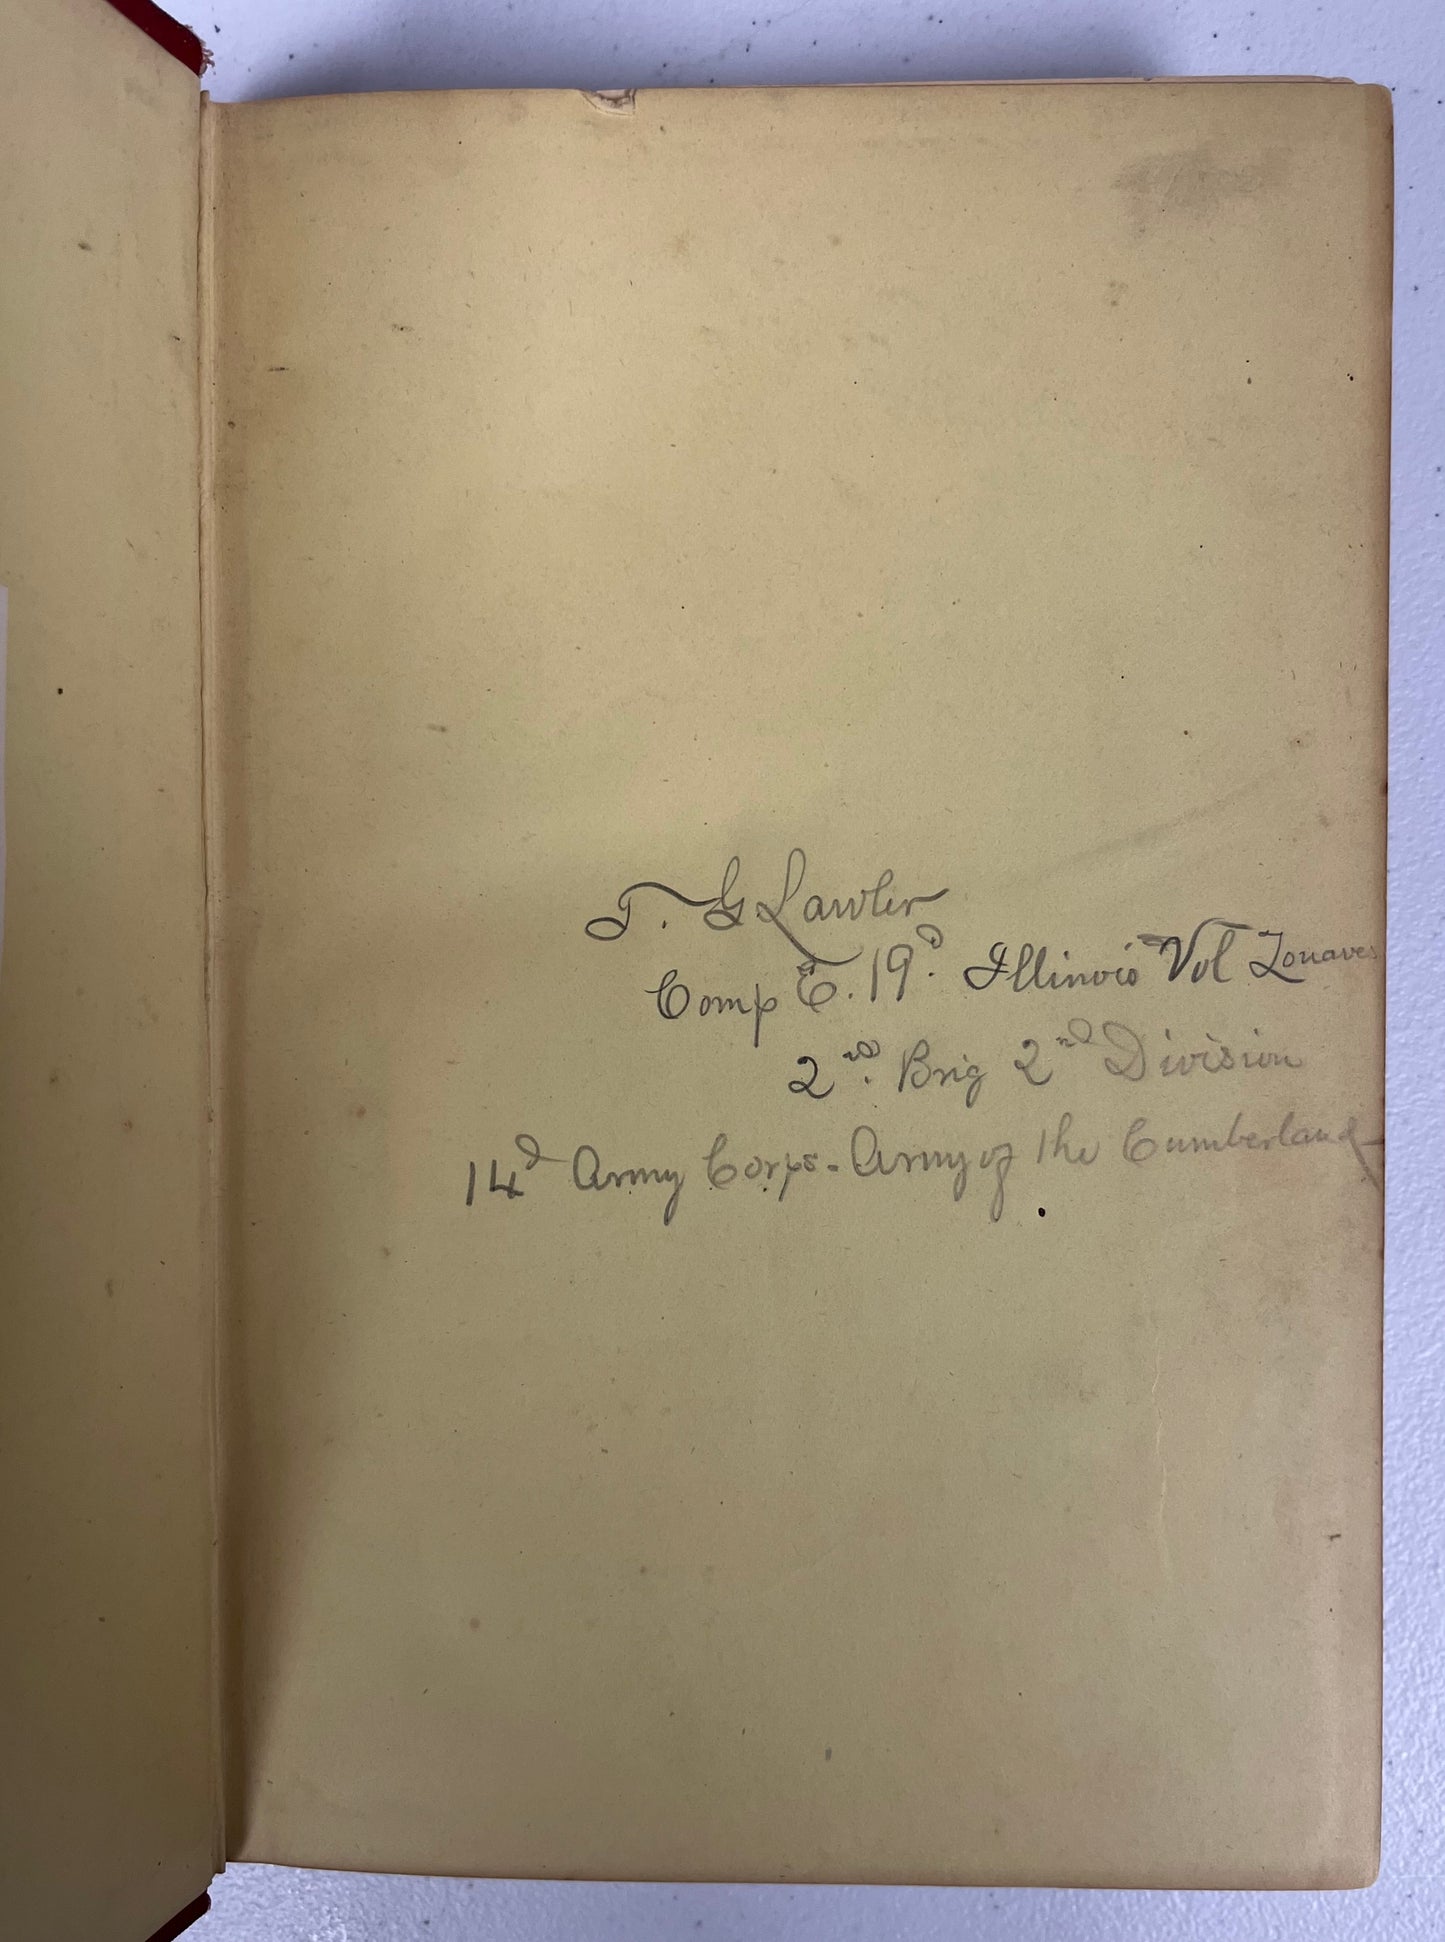 T. G Lawler
Comp E. 19.D Illinois Vol Zouaves
2.nD Brig 2nD Division
14D Army Corps. Army of the Cumberland